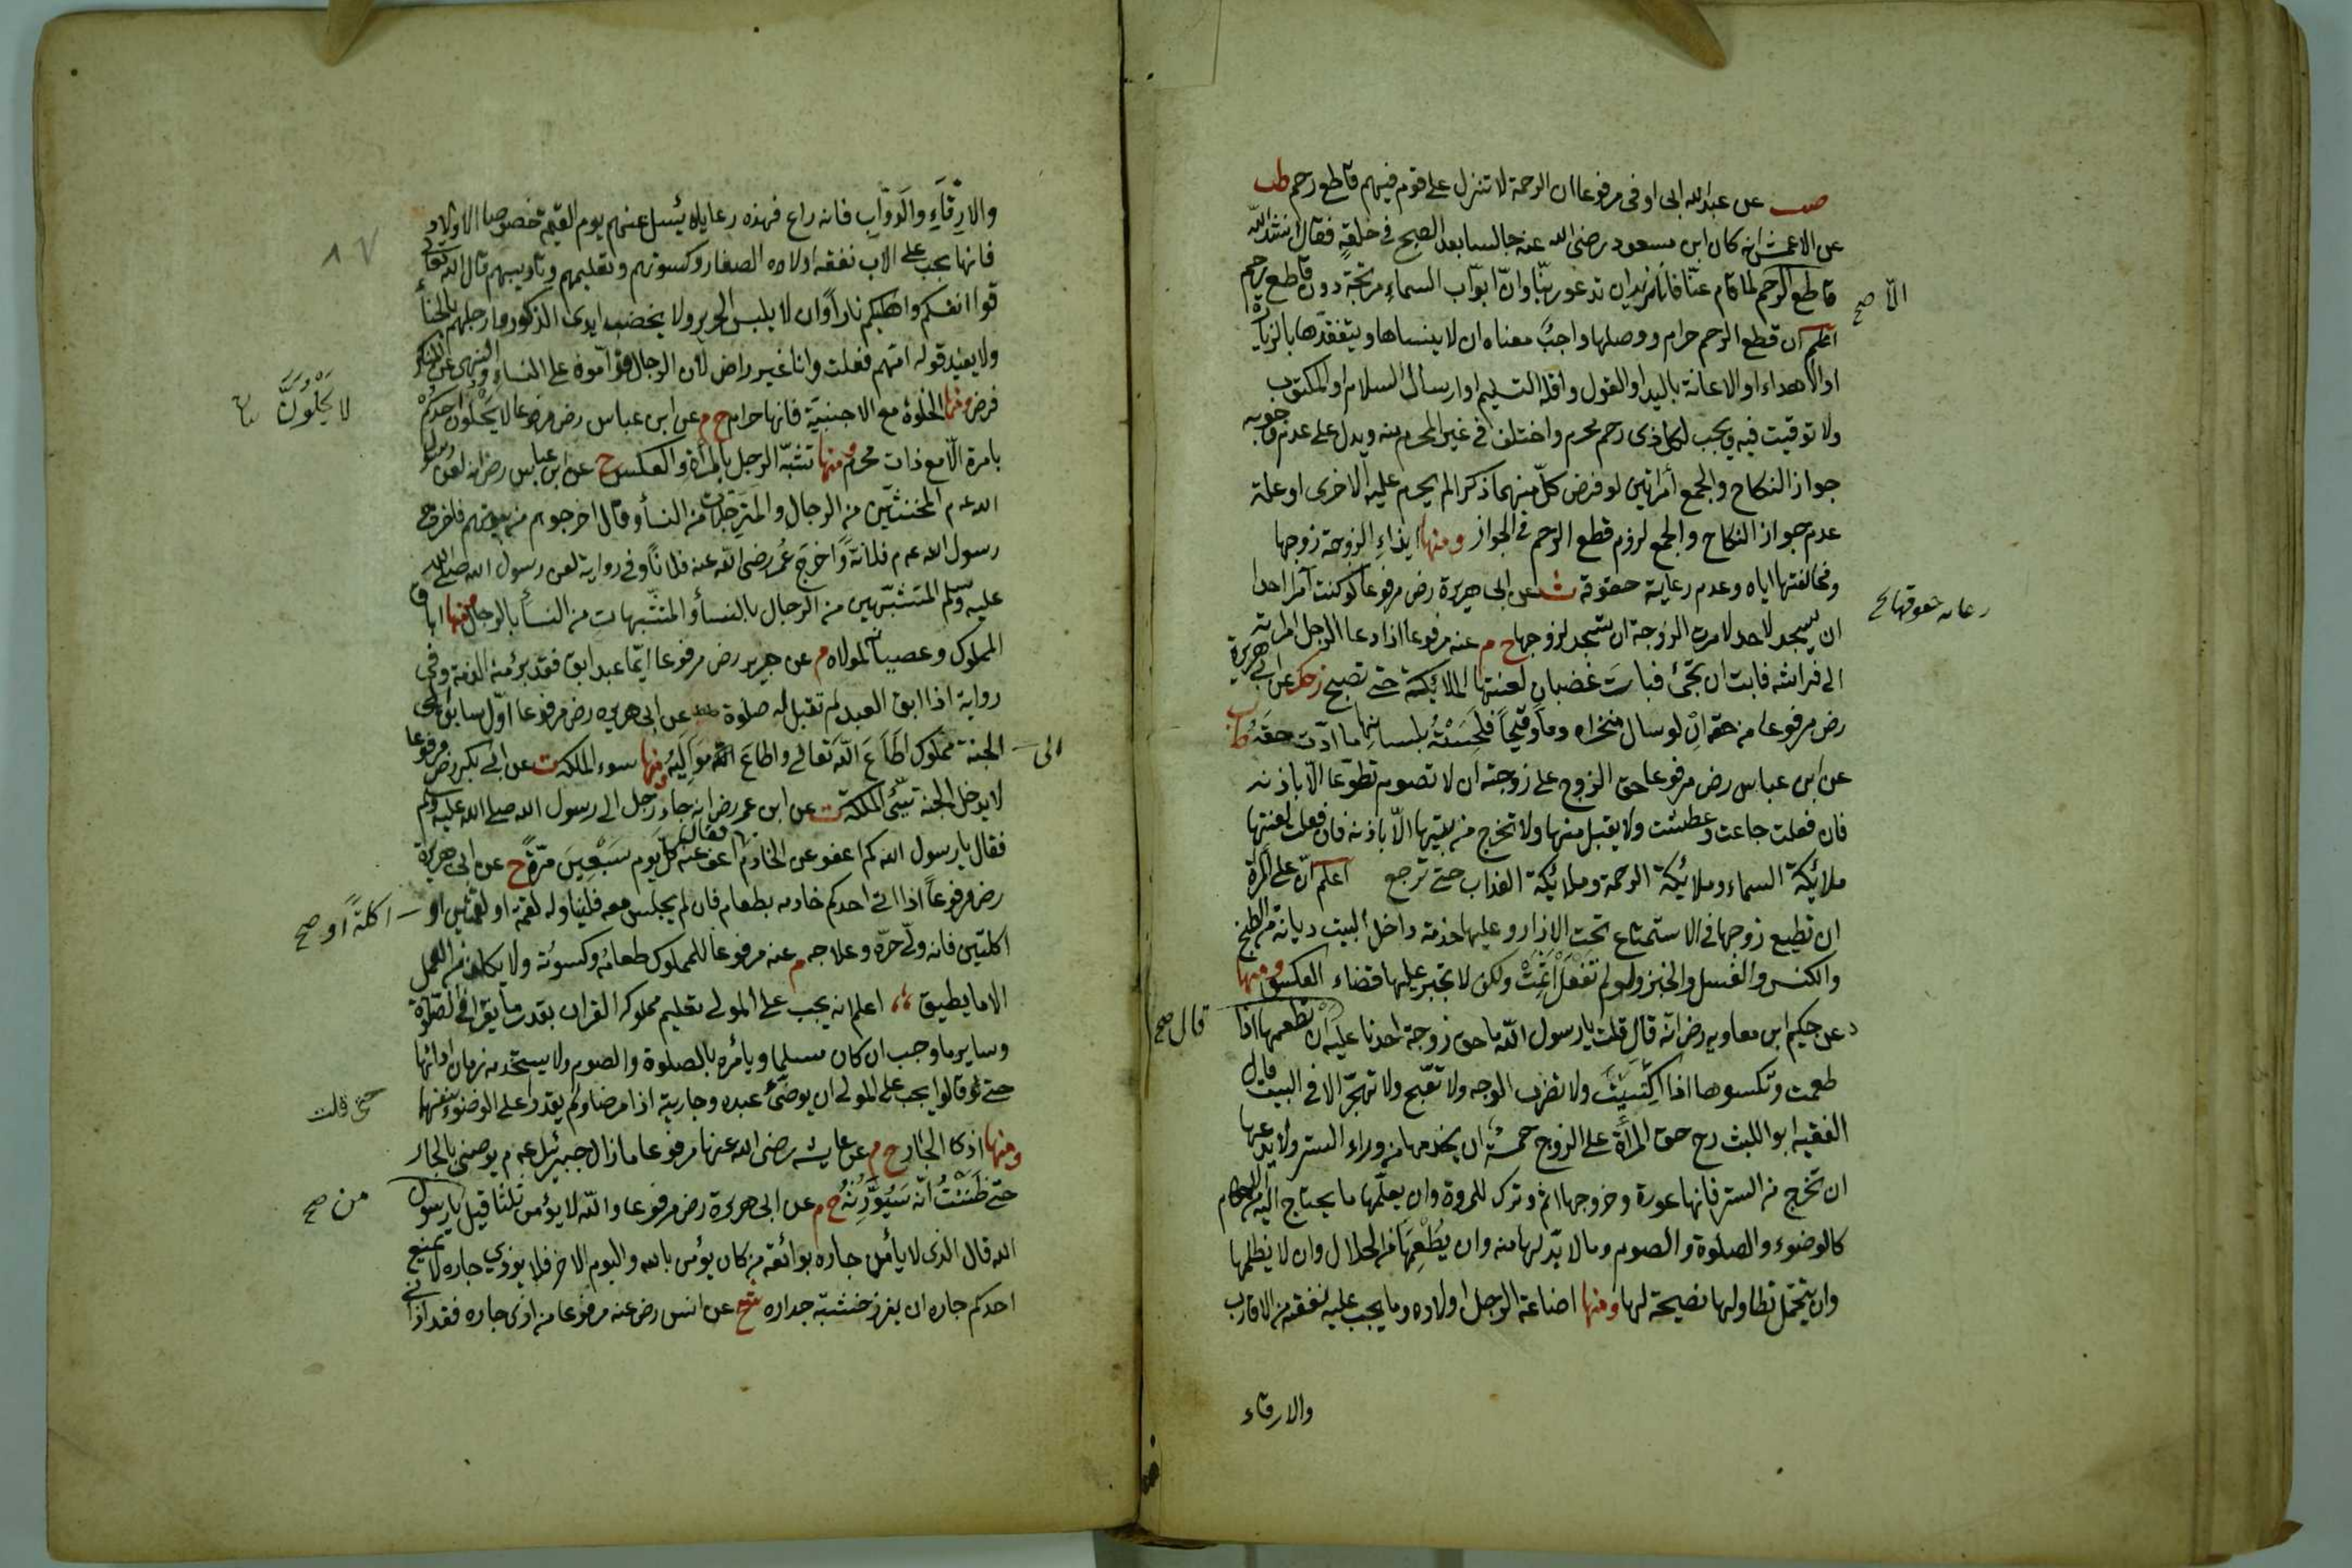 صب عن عبد الله ابى اوفى مرفوعا ان الرحمة لا تنزل على قوم فيهم قاطع رحم طب
عن الاعمش انه كان ابن مسعود رضى الله عنه جالسا بعد الصبح فى حلقة فقال انشد الله
قاطع الرحم لما قام عنا فانا نريد ان ندعو ربنا وان ابواب السماء مرتجة دون قاطع رحم
الا صح
اعلم ان قطع الرحم حرام ووصلها واجب معناه ان لا ينساها ويتفقدها بالزيارة
او الاهداء او الاعانة باليد او القول واقله التسليم او ارسال السلام او المكتوب
ولا توقيت فيه ويجب لكل ذى رحم محرم واختلف فى غير المحرم منه ويدل على عدم وجوبه
جواز النكاح والجمع امراتين لو فرض كل منهما ذكرا لم يحرم عليه الاخرى او علة
عدم جواز النكاح والجمع لزوم قطع الرحم فى الجواز ومنها ايذاء الزوجة زوجها
ومخالفتها اياه وعدم رعاية حقوقه ت عن ابى هريرة رض مرفوعا لو كنت آمرا احدا
رعايه حقوقها صح
ان يسجد لاحد لامرت الزوجة ان تسجد لزوجها ح م عنه مرفوعا اذا دعا الرجل امراته
الى فراشه فابت ان تجئ فبات غضبان لعنتها الملائكة حتى تصبح زحك عن ابى هريرة
رض مرفوعا من حقه ان لو سال منخراه دما وقيحا فلحسته بلسانها ما ادت حقه طب
عن ابن عباس رض مرفوعا حق الزوج على زوجته ان لا تصوم تطوعا الا باذنه
فان فعلت جاعت وعطشت ولا يقبل منها ولا تخرج من بيتها الا باذنه فان فعلت لعنتها
ملائكة السماء وملائكة الرحمة وملائكة العذاب حتى ترجع اعلم ان على المرأة
ان تطيع زوجها فى الاستمتاع تحت الازار وعليها خدمة داخل البيت ديانة من الطبخ
والكنس والغسل والخبز ولو لم تفعل اثمت ولكن لا تجبر عليها قضاء العكس ومنها
د عن حكيم ابن معاويه رض انه قال قلت يا رسول الله ما حق زوجة احدنا عليه ان تطعمها اذا
قال صح
طعمت وتكسوها اذا اكتسيت ولا تضرب الوجه ولا تقبح ولا تهجر الا فى البيت قال
الفقيه ابو الليث رح حق المرأة على الزوج خمسة ان يخدمها من وراء الستر ولا يدعها
ان تخرج من الستر فانها عورة وخروجها اثم وترك للمروة وان يعلمها ما يحتاج اليه من الاحكام
كالوضوء والصلوة والصوم وما لا بد لها منه وان يطعمها من الحلال وان لا يظلمها
وان يتحمل تطاولها نصيحة لها ومنها اضاعة الرجل اولاده وما يجب عليه نفقته من الاقارب
والارقاء
والارقاء والدواب فانه راع فهذه رعاياه يسئل عنهم يوم القيمة خصوصا الاولاد
٨٧
فانها يجب على الاب نفقه اولاده الصغار وكسوتهم وتعليمهم وتاديبهم قال الله تعالى
قوا انفسكم واهليكم نارا وان لا يلبس الحرير ولا يخضب ايدى الذكور وارجلهم بالحناء
ولا يفيد قوله امتهم فعلت وانا غير راض لان الرجال قوامون على النساء والنهى عن المنكر
فرض ومنها الخلوة مع الاجنبية فانها حرام ح م عن ابن عباس رض مرفوعا لا يخلون احدكم
لا يخلون
بامرة الا مع ذات محرم ومنها تشبه الرجل بالمرأة والعكس ح عن ابن عباس رض انه لعن رسول
الله عم المخنثين من الرجال والمترجلات من النسأ وقال اخرجوهم من بيوتهم فاخرج
رسول الله عم فلانة واخرج عمر رضى الله عنه فلانا وفى رواية لعن رسول الله صلى الله
عليه وسلم المتشبهين من الرجال بالنسأ والمتشبهات من النسأ بالرجال ومنها اباق
المملوك وعصيانه لمولاه م عن جرير رض مرفوعا ايما عبد ابق فقد برئ منه الذمة وفى
رواية اذا ابق العبد لم تقبل له صلوة طط عن ابى هريره رض مرفوعا اول سابق الى
الى
الجنة مملوك اطاع الله تعالى واطاع مواليه ومنها سوء الملكة ت عن ابى بكر رض مرفوعا
لا يدخل الجنة سيئ الملكة ت عن ابن عمر رض انه جاء رجل الى رسول الله صلى الله عليه وسلم
فقال يا رسول الله كم اعفو عن الخادم فقال اعف عنه كل يوم سبعين مرة ح عن ابى هريرة
رض مرفوعا اذا اتى احدكم خادمه بطعام فان لم يجلس معه فليناوله لقمة او لقمتين او
اكلة او صح
اكلتين فانه ولى حره وعلاجه م عنه مرفوعا للمملوك طعامه وكسوته ولا يكلف من العمل
الا ما يطيق اعلم انه يجب على المولى تعليم مملوكه القران بقدر ما يقرا فى الصلوة
وساير ما وجب ان كان مسلما ويأمره بالصلوة والصوم ولا يستخدمه زمان ادائها
حتى قالوا يجب على المولى ان يوضئ عبده وجاريته اذا مرضا ولم يقدرا على الوضوء بنفسهما
ومنها اذى الجار ح م عن عايشه رضى الله عنها مرفوعا ما زال جبرئيل عم يوصنى بالجار
حتى ظننت انه سيورثه ح م عن ابى هريرة رض مرفوعا والله لا يؤمن ثلثا قيل يا رسول
من صح
الله قال الذى لا يأمن جاره بوائقه من كان يؤمن بالله واليوم الاخر فلا يوذي جاره لا يمنع
احدكم جاره ان يغرز خشبة جداره عن انس رض عنه مرفوعا من اذى جاره فقد اذانى